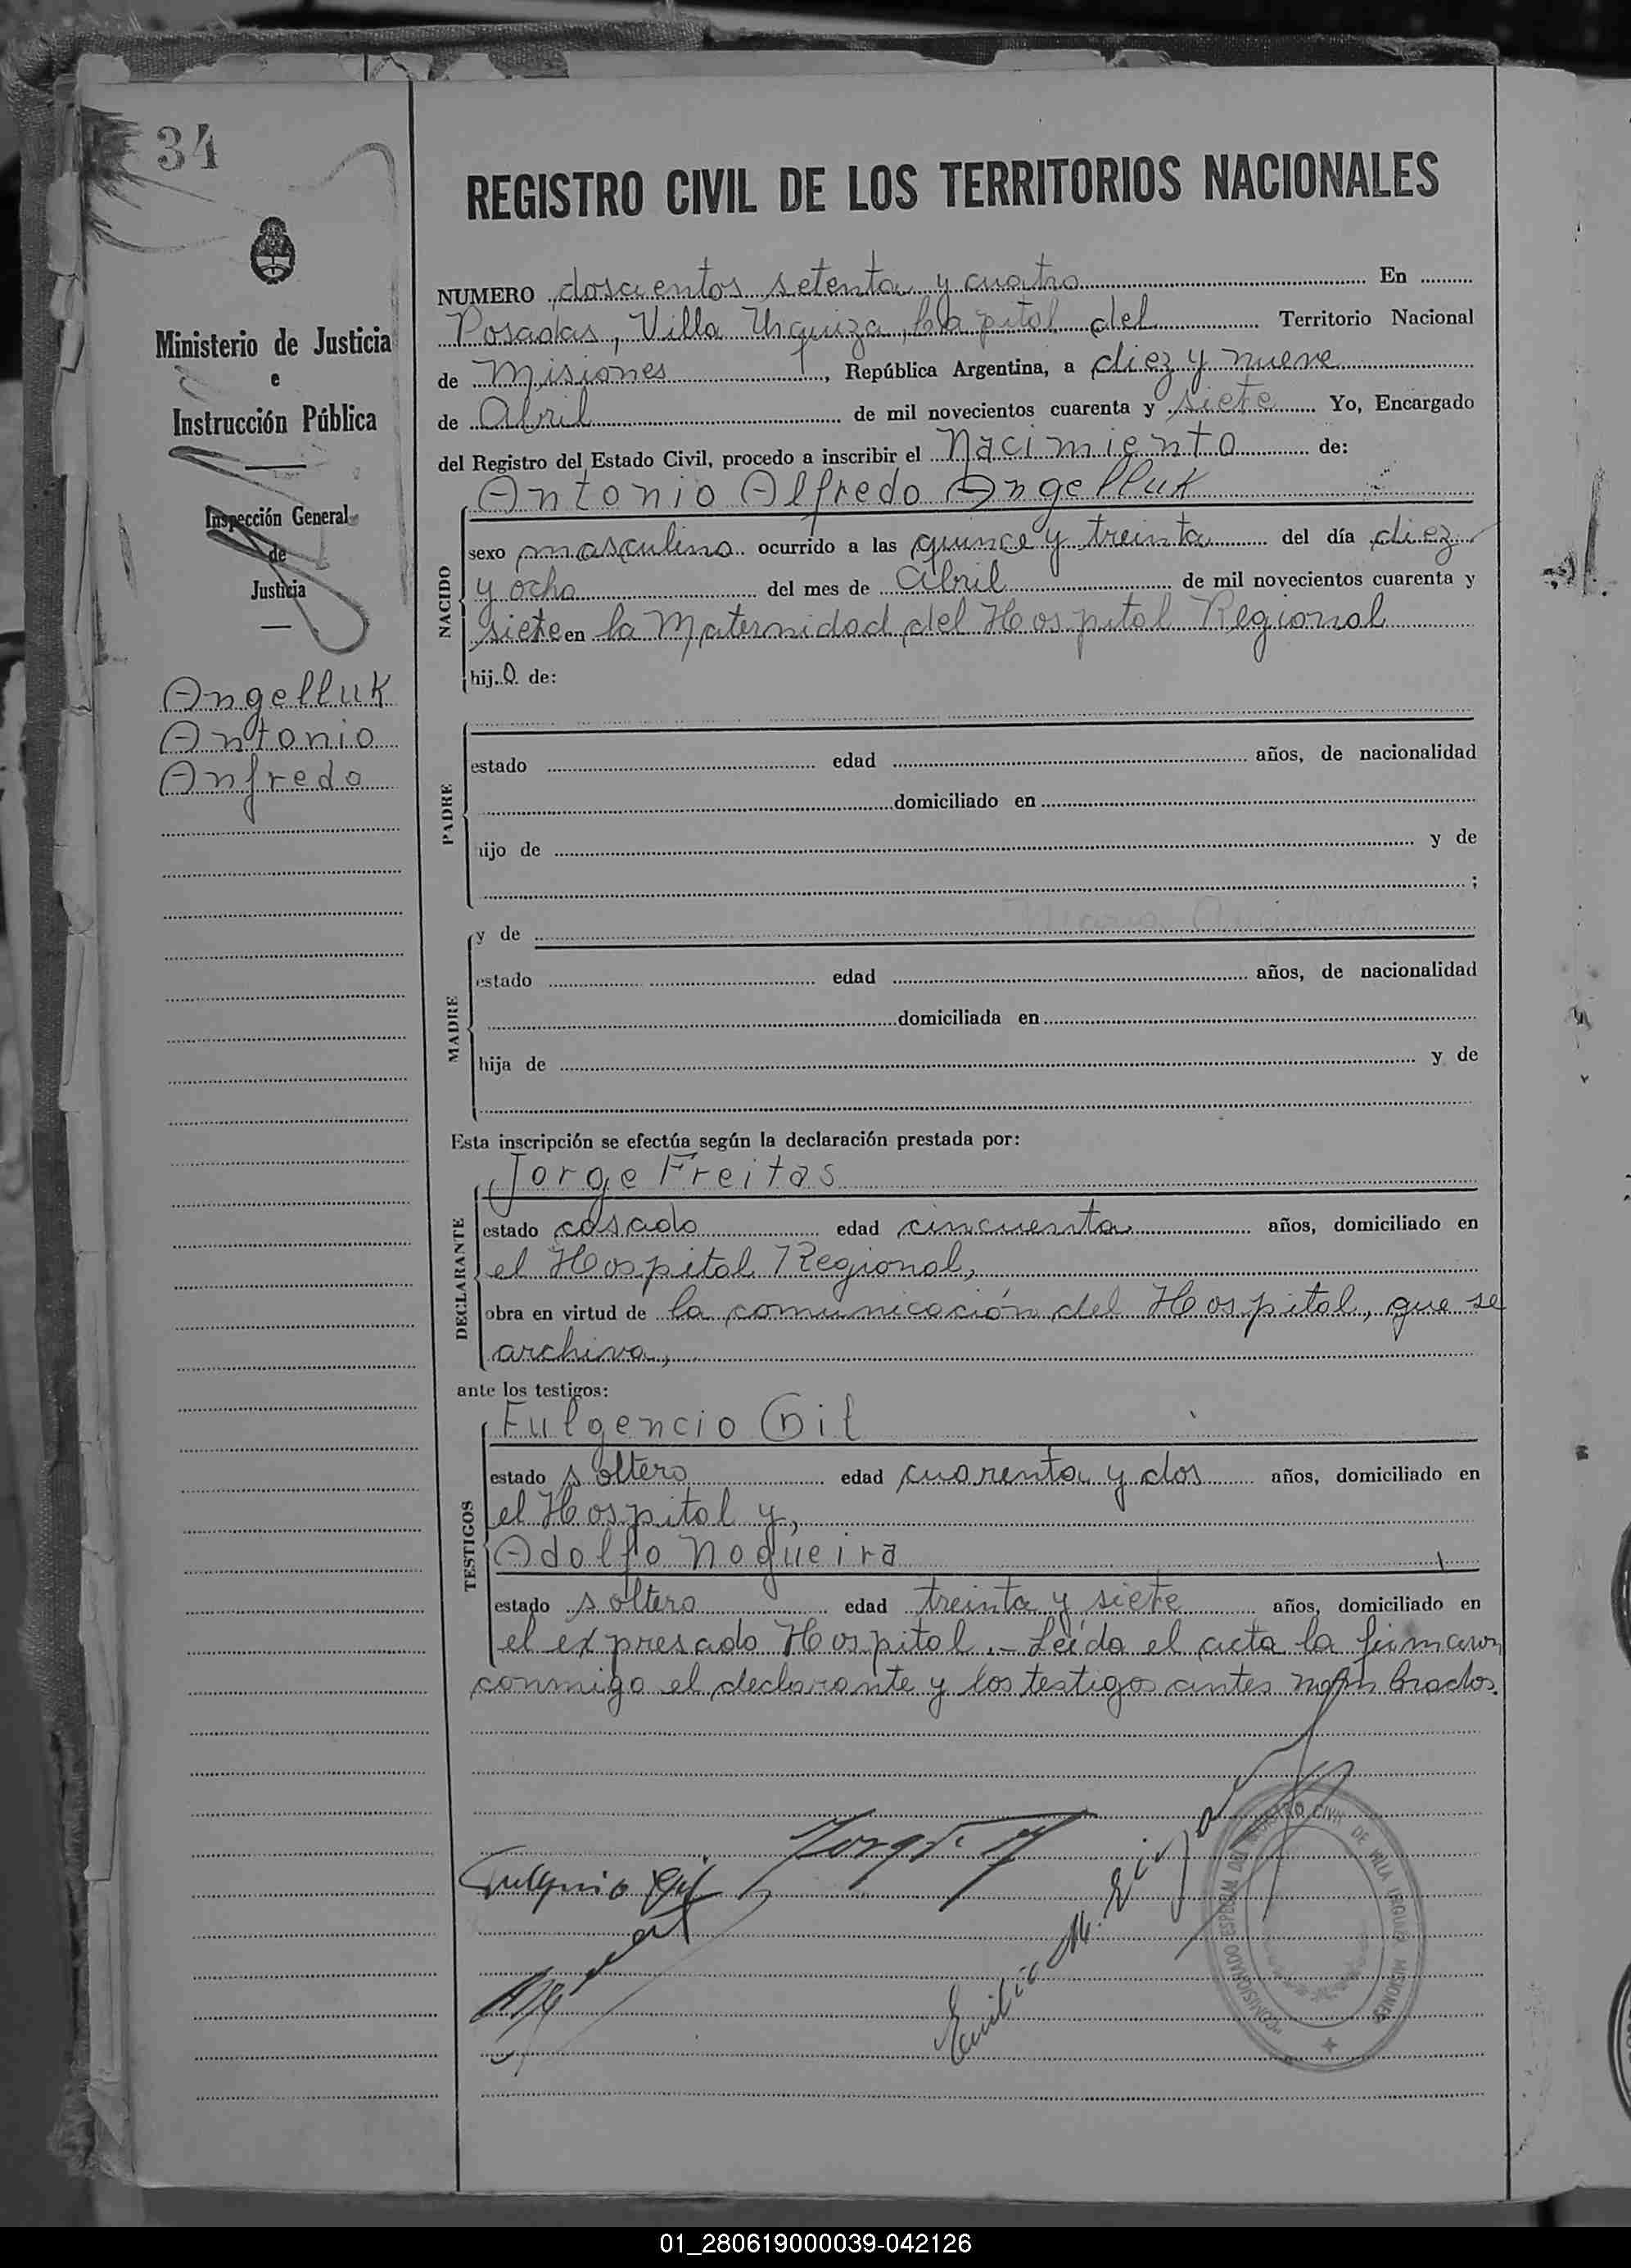 34
Ministerio de Justicia
e
Instrucción Pública
Inspección General
de
Justicia
Angelluk
Antonio
Anfredo
REGISTRO CIVIL DE LOS TERRITORIOS NACIONALES
NUMERO doscientos setenta y cuatro En
Posadas, Villa Urquiza, capital del Territorio Nacional
de Misiones, República Argentina, a diez y nueve
de Abril de mil novecientos cuarenta y siete Yo, Encargado
del Registro del Estado Civil, procedo a inscribir el Nacimiento de:
Antonio Alfredo Angelluk
NACIDO
sexo masculino ocurrido a las quince y treinta del día diez
y ocho del mes de abril de mil novecientos cuarenta y
siete en la Maternidad del Hospital Regional
hijo de:
PADRE
estado edad años, de nacionalidad
domiciliado en
hijo de y de
;
MADRE
y de
estado edad años, de nacionalidad
domiciliada en
hija de y de
Esta inscripción se efectúa según la declaración prestada por:
Jorge Freitas
DECLARANTE
estado casado edad cincuenta años, domiciliado en
el Hospital Regional,
obra en virtud de la comunicación del Hospital, que se
archiva,
ante los testigos:
Fulgencio Gil
TESTIGOS
estado soltero edad cuarenta y dos años, domiciliado en
el Hospital y,
Adolfo Nogueira
estado soltero edad treinta y siete años, domiciliado en
el expresado Hospital.- Leída el acta la firmaron
conmigo el declarante y los testigos antes nombrados.
Fulgencio Gil
Emilio M.
COMISIONADO ESPECIAL DEL REGISTRO CIVIL DE VILLA URQUIZA MISIONES
01_280619000039-042126